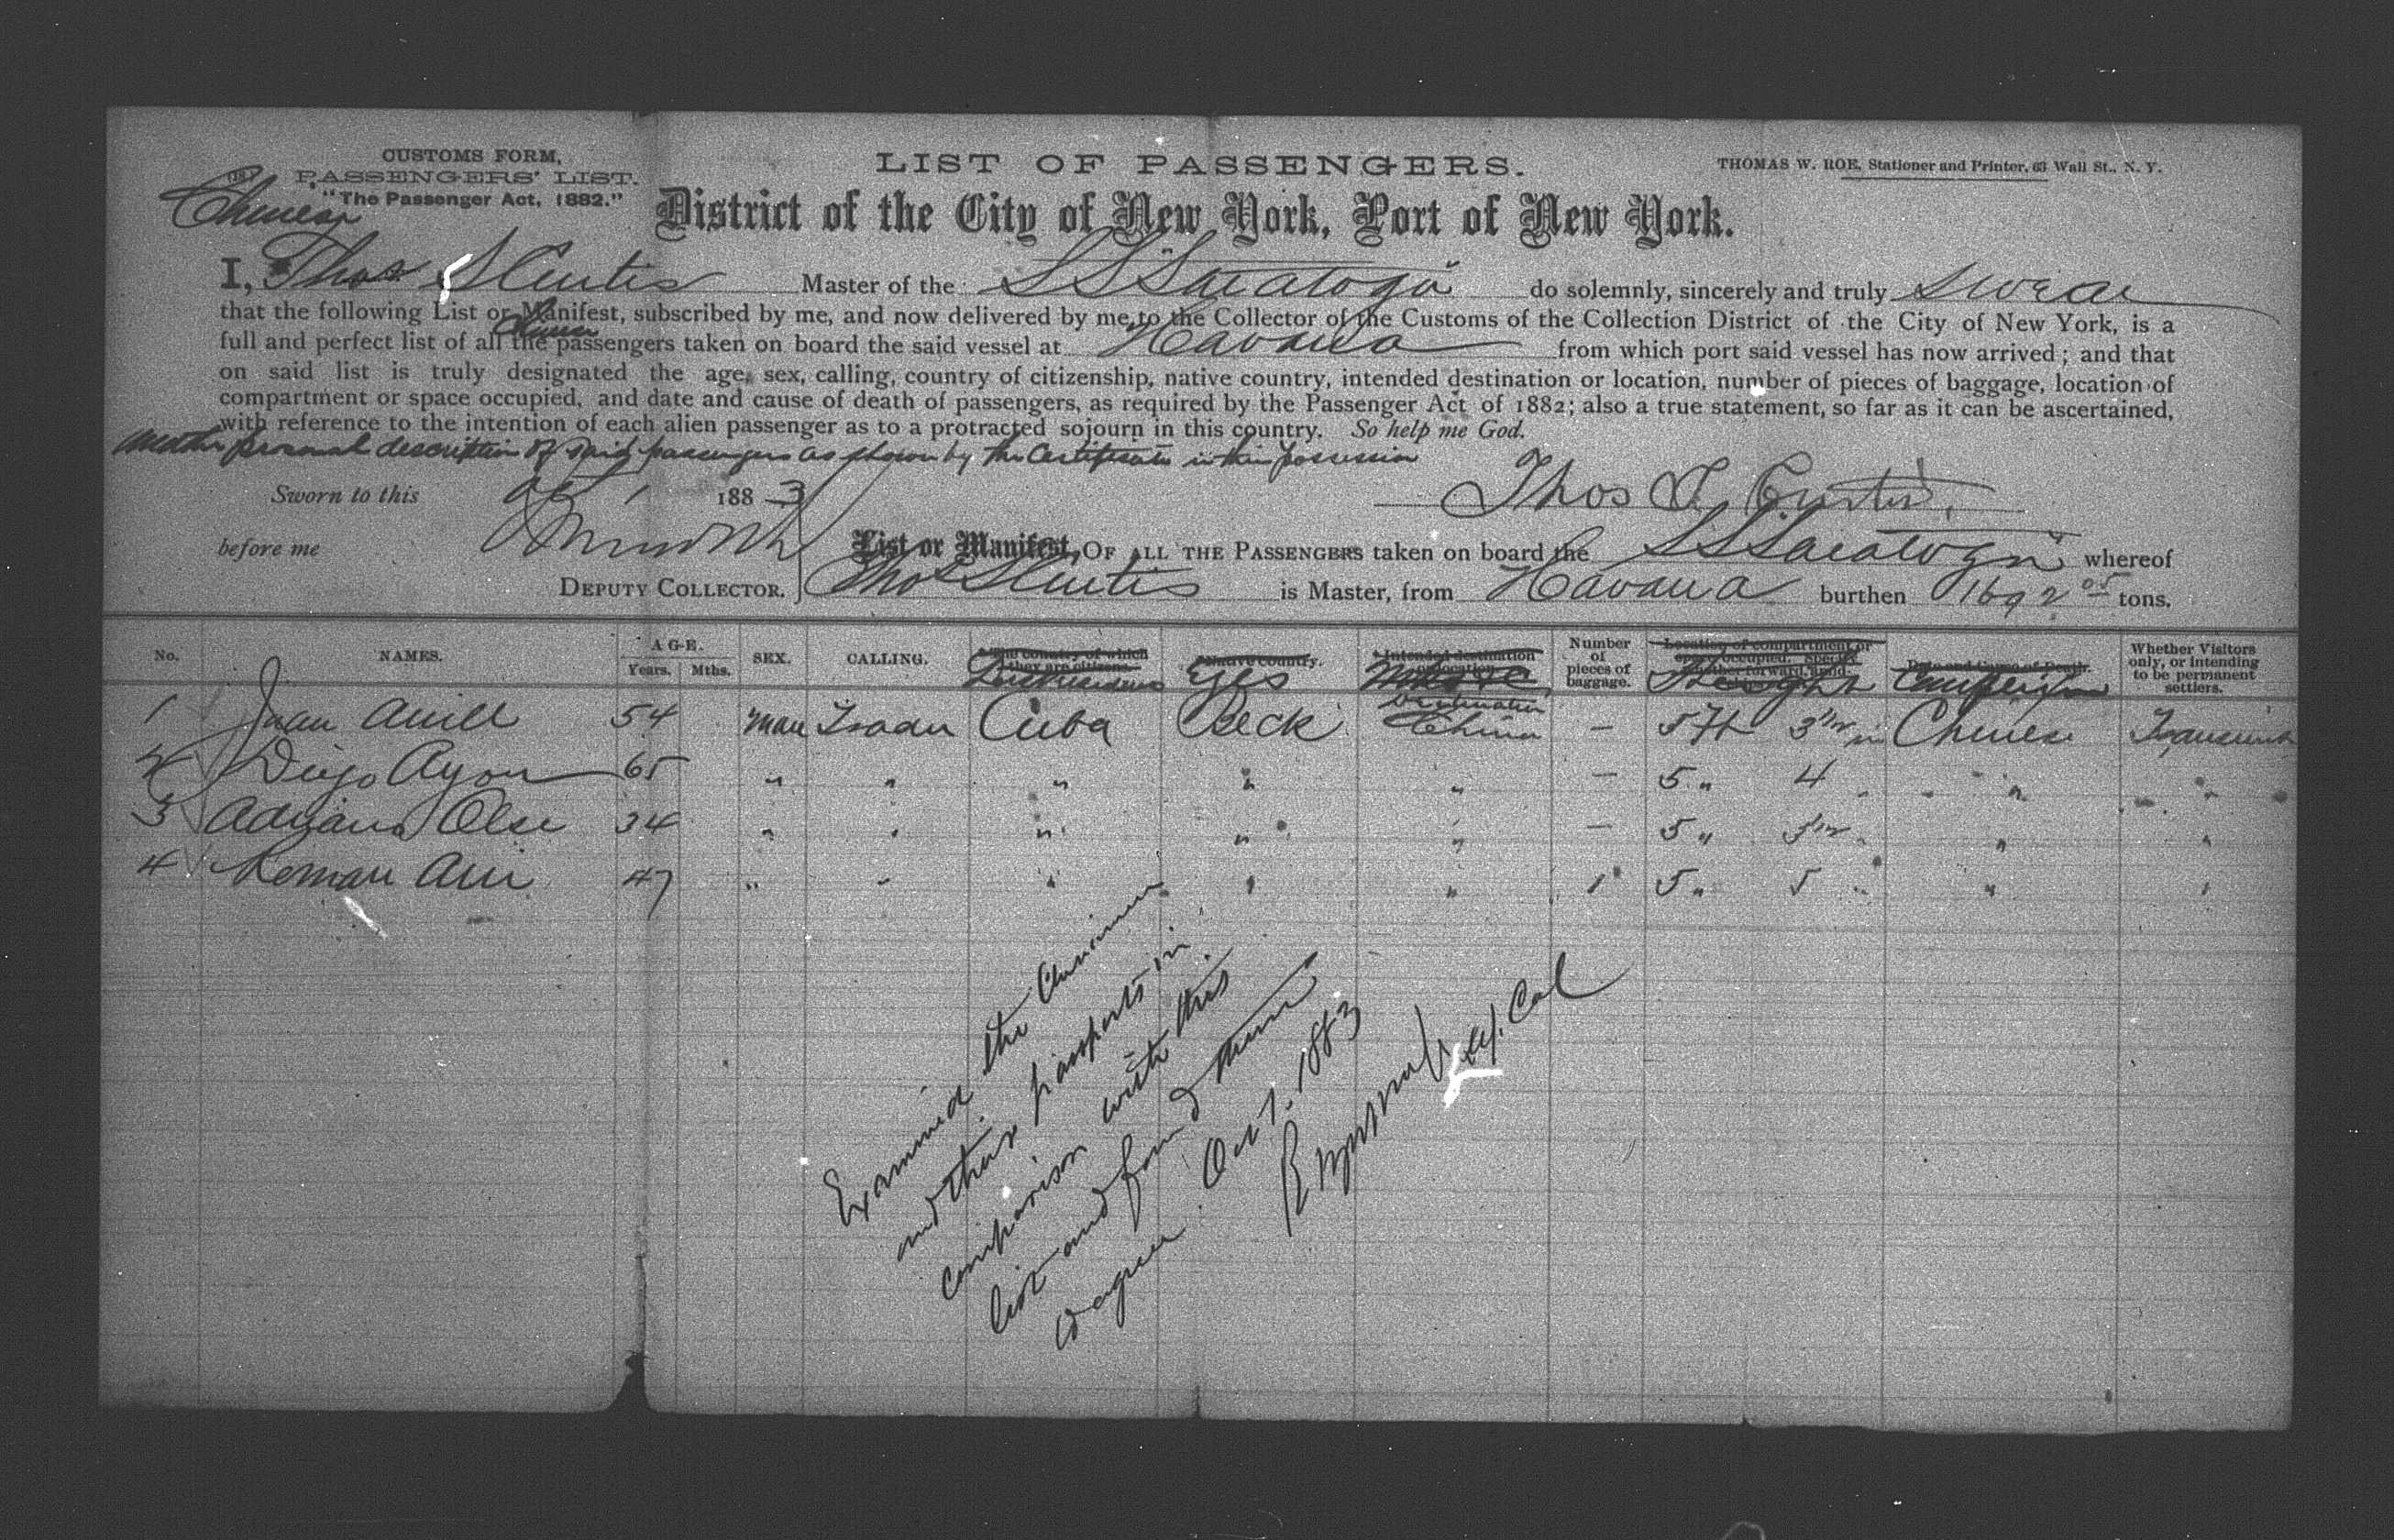 CUSTOMS FORM,
PASSENGERS' LIST.
"The Passenger Act, 1882."
Chinese
LIST OF PASSENGERS.
THOMAS W. ROE, Stationer and Printer, 63 Wall St., N. Y.
District of the City of New York, Port of New York.
I, Thos S Curtis Master of the SS "Saratoga" do solemnly, sincerely and truly swear
that the following List or Manifest, subscribed by me, and now delivered by me to the Collector of the Customs of the Collection District of the City of New York, is a
Chinese
full and perfect list of all the passengers taken on board the said vessel at Havana from which port said vessel has now arrived; and that
on said list is truly designated the age, sex, calling, country of citizenship, native country, intended destination or location, number of pieces of baggage, location of
compartment or space occupied, and date and cause of death of passengers, as required by the Passenger Act of 1882; also a true statement, so far as it can be ascertained,
with reference to the intention of each alien passenger as to a protracted sojourn in this country. So help me God.
personal description of said passengers as shown by the Certificate in their possession
Sworn to this Oct 1 1883
Thos S. Curtis,
before me
List or Manifest, OF ALL THE PASSENGERS taken on board the SS Saratoga whereof
DEPUTY COLLECTOR. Thos S Curtis is Master, from Havana burthen 1692 05 tons.
No. NAMES. AGE. Years. Mths. SEX. CALLING. The country of which they are citizens. Last Residence Native Country. Eyes Intended destination or location. Destination Number of pieces of baggage. Location of compartment or space occupied. Height Date and Cause of Death. Complexion Whether Visitors only, or intending to be permanent settlers.
1 Juan 54 man Cuba China — 5 ft 3 1/2 in Chinese Transient
2 Diego Ayon 65 " " " " " — 5 " 4 " " "
3 Adriano 34 " " " " " — 5 " 5 1/2 " " "
4 Roman 47 " " " " " 1 5 " 5 " " "
Examined the Chinamen
and their passports in
comparison with this
list and found them
to agree. Oct 1. 1883